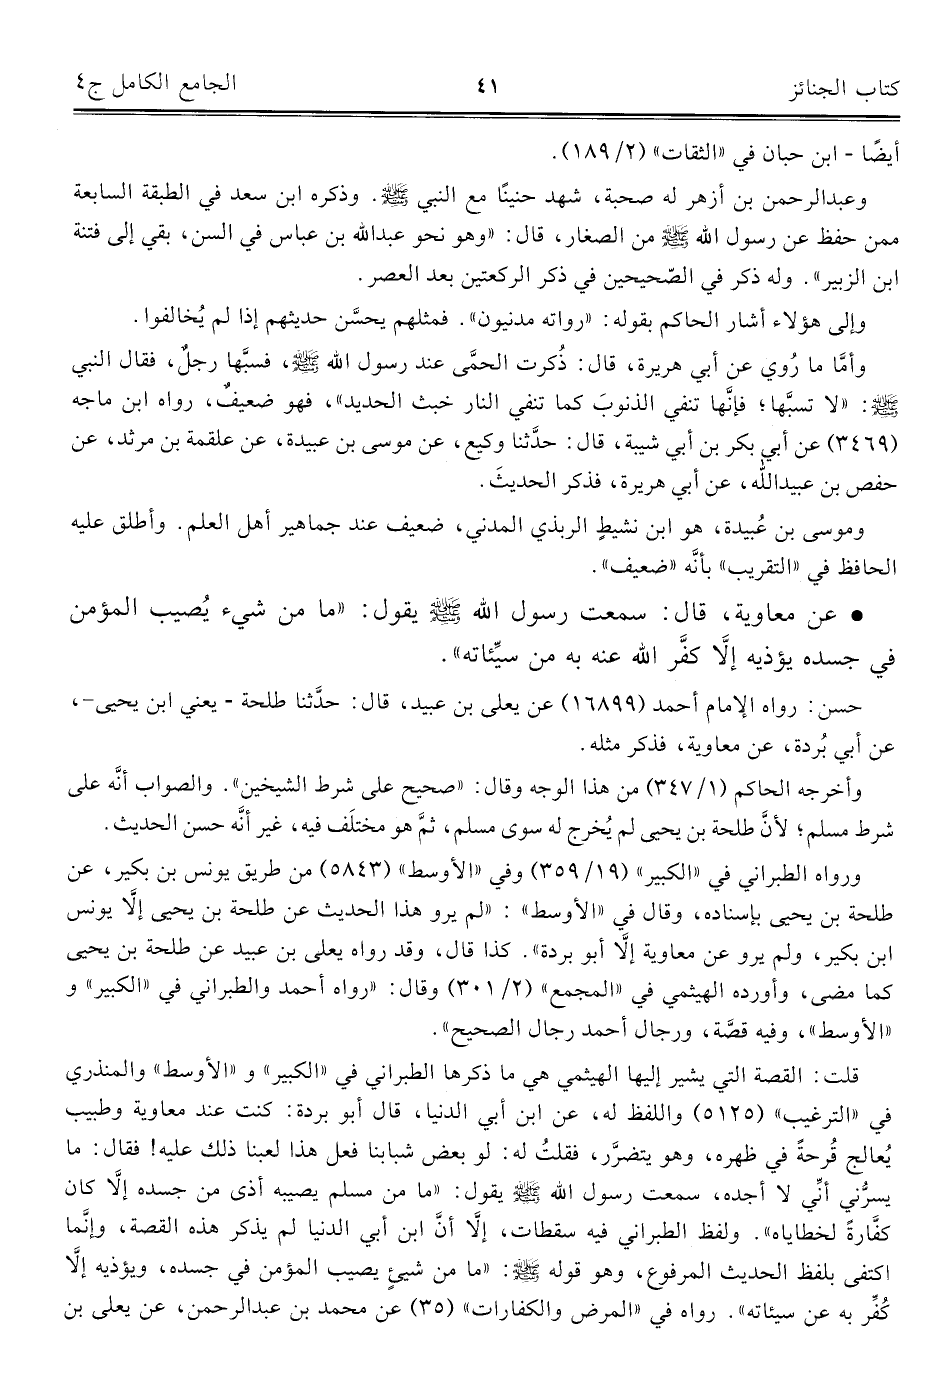 كتاب الجنائز ٤١ الجامع الكامل ج٤
أيضًا - ابن حبان في «الثقات» (٢/ ١٨٩).
وعبدالرحمن بن أزهر له صحبة، شهد حنينًا مع النبي ﷺ. وذكره ابن سعد في الطبقة السابعة
ممن حفظ عن رسول الله ﷺ من الصغار، قال: «وهو نحو عبدالله بن عباس في السن، بقي إلى فتنة
ابن الزبير». وله ذكر في الصّحيحين في ذكر الركعتين بعد العصر.
وإلى هؤلاء أشار الحاكم بقوله: «رواته مدنيون». فمثلهم يحسَّن حديثهم إذا لم يُخالفوا.
وأمَّا ما رُوي عن أبي هريرة، قال: ذُكرت الحمَّى عند رسول الله ﷺ، فسبَّها رجلٌ، فقال النبي
ﷺ: «لا تسبَّها؛ فإنَّها تنفي الذنوبَ كما تنفي النار خبث الحديد»، فهو ضعيفٌ، رواه ابن ماجه
(٣٤٦٩) عن أبي بكر بن أبي شيبة، قال: حدَّثنا وكيع، عن موسى بن عبيدة، عن علقمة بن مرثد، عن
حفص بن عبيدالله، عن أبي هريرة، فذكر الحديثَ.
وموسى بن عُبيدة، هو ابن نشيطٍ الربذي المدني، ضعيف عند جماهير أهل العلم. وأطلق عليه
الحافظ في «التقريب» بأنَّه «ضعيف».
• عن معاوية، قال: سمعت رسول الله ﷺ يقول: «ما من شيء يُصيب المؤمن
في جسده يؤذيه إلَّا كفَّر الله عنه به من سيِّئاته».
حسن: رواه الإمام أحمد (١٦٨٩٩) عن يعلى بن عبيد، قال: حدَّثنا طلحة - يعني ابن يحيى-،
عن أبي بُردة، عن معاوية، فذكر مثله.
وأخرجه الحاكم (١/ ٣٤٧) من هذا الوجه وقال: «صحيح على شرط الشيخين». والصواب أنَّه على
شرط مسلم؛ لأنَّ طلحة بن يحيى لم يُخرج له سوى مسلم، ثمَّ هو مختلَف فيه، غير أنَّه حسن الحديث.
ورواه الطبراني في «الكبير» (١٩/ ٣٥٩) وفي «الأوسط» (٥٨٤٣) من طريق يونس بن بكير، عن
طلحة بن يحيى بإسناده، وقال في «الأوسط» : «لم يرو هذا الحديث عن طلحة بن يحيى إلَّا يونس
ابن بكير، ولم يرو عن معاوية إلَّا أبو بردة». كذا قال، وقد رواه يعلى بن عبيد عن طلحة بن يحيى
كما مضى، وأورده الهيثمي في «المجمع» (٢/ ٣٠١) وقال: «رواه أحمد والطبراني في «الكبير» و
«الأوسط»، وفيه قصَّة، ورجال أحمد رجال الصحيح».
قلت: القصة التي يشير إليها الهيثمي هي ما ذكرها الطبراني في «الكبير» و «الأوسط» والمنذري
في «الترغيب» (٥١٢٥) واللفظ له، عن ابن أبي الدنيا، قال أبو بردة: كنت عند معاوية وطبيب
يُعالج قُرحةً في ظهره، وهو يتضرَّر، فقلتُ له: لو بعض شبابنا فعل هذا لعبنا ذلك عليه! فقال: ما
يسرُّني أنِّي لا أجده، سمعت رسول الله ﷺ يقول: «ما من مسلم يصيبه أذى من جسده إلَّا كان
كفَّارةً لخطاياه». ولفظ الطبراني فيه سقطات، إلَّا أنَّ ابن أبي الدنيا لم يذكر هذه القصة، وإنَّما
اكتفى بلفظ الحديث المرفوع، وهو قوله ﷺ: «ما من شيئٍ يصيب المؤمن في جسده، ويؤذيه إلَّا
كُفِّر به عن سيئاته». رواه في «المرض والكفارات» (٣٥) عن محمد بن عبدالرحمن، عن يعلى بن